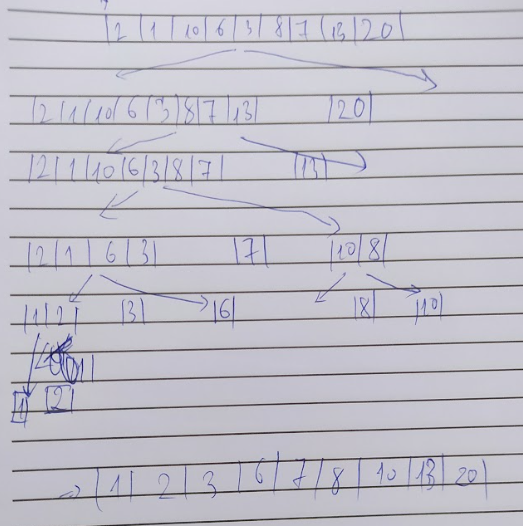 |2|1|10|6|3|8|7|13|20|
|2|1|10|6|3|8|7|13| |20|
|2|1|10|6|3|8|7| |13|
|2|1|6|3| |7| |10|8|
|1|2| |3| |6| |8| |10|
|1| |2|
|1|2|3|6|7|8|10|13|20|